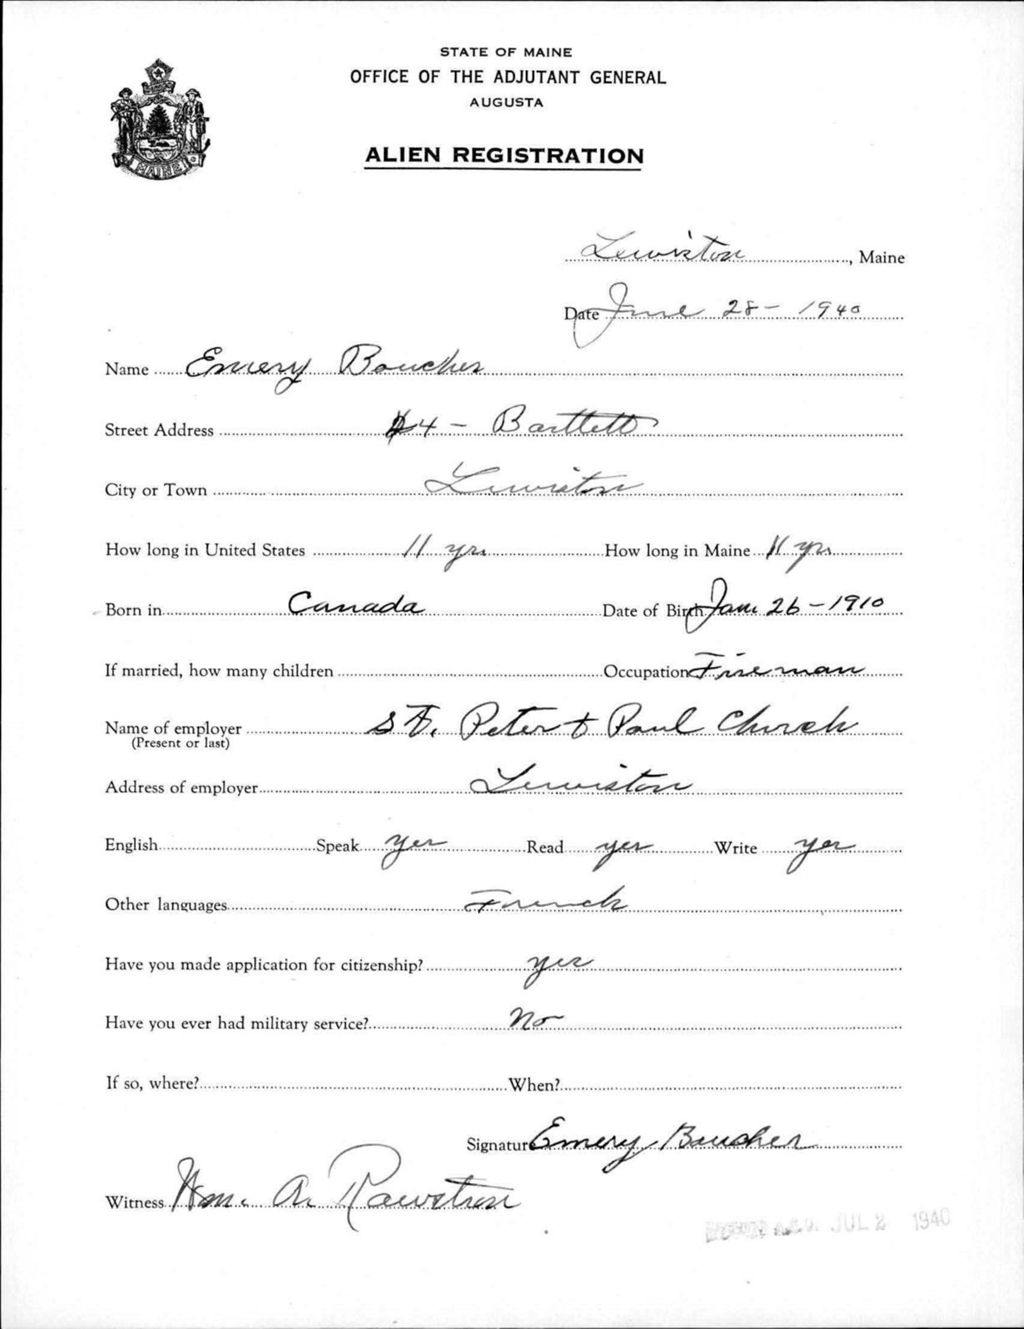 STATE OF MAINE
OFFICE OF THE ADJUTANT GENERAL
AUGUSTA
ALIEN REGISTRATION
MAINE
Lewiston, Maine
Date June 28 - 1940
Name Emery Boucher
Street Address 4 - Bartlett
City or Town Lewiston
How long in United States 11 yrs How long in Maine 11 yrs
Born in Canada Date of Birth Jan. 26 - 1910
If married, how many children Occupation Fireman
Name of employer St. Peter & Paul Church
(Present or last)
Address of employer Lewiston
English Speak yes Read yes Write yes
Other languages French
Have you made application for citizenship? yes
Have you ever had military service? No
If so, where? When?
Signature Emery Boucher
Witness Wm. A. Rawstron
A.G.O. JUL 2 1940